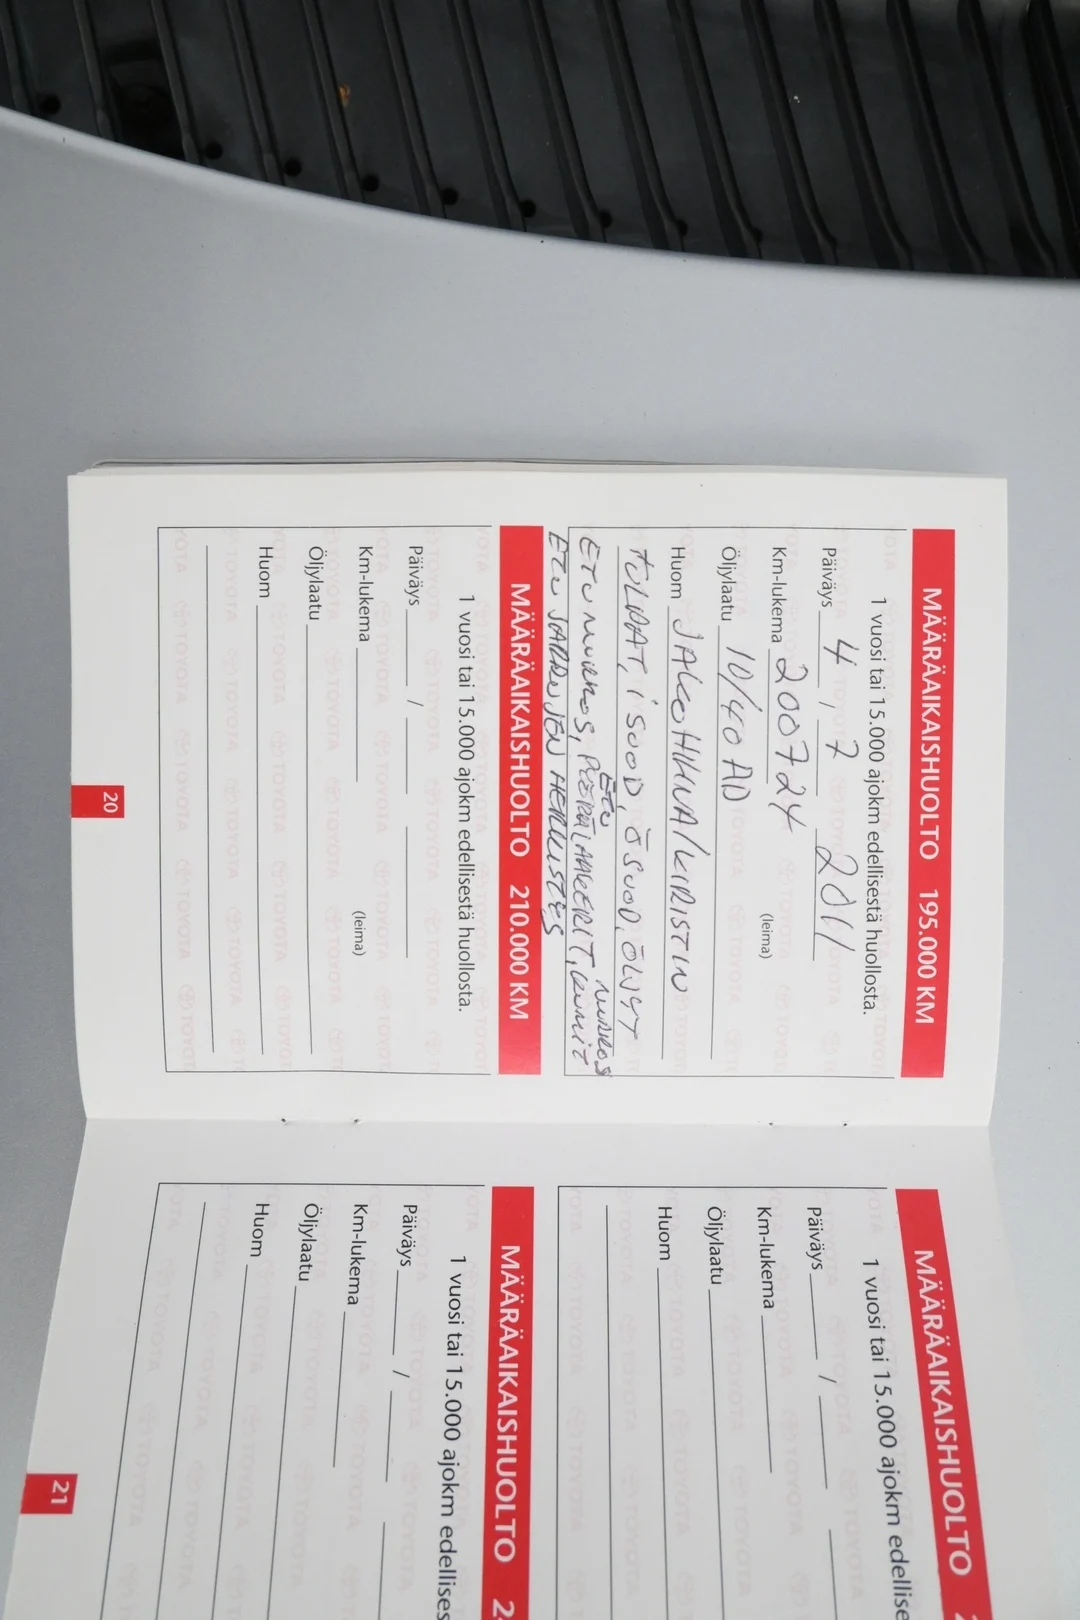 MÄÄRÄAIKAISHUOLTO 195.000 KM
1 vuosi tai 15.000 ajokm edellisestä huollosta.
Päiväys 4 / 7 2011
Km-lukema 200724 (leima)
Öljylaatu 10/40 AD
Huom JAKOHIHNA/KIRISTIN
TULPAT, i SUOD, ÖSUOD, ÖLJYT
ETU
ETU JARRUJEN
MÄÄRÄAIKAISHUOLTO 210.000 KM
1 vuosi tai 15.000 ajokm edellisestä huollosta.
Päiväys /
Km-lukema (leima)
Öljylaatu
Huom
20
MÄÄRÄAIKAISHUOLTO 2
1 vuosi tai 15.000 ajokm edellise
Päiväys /
Km-lukema
Öljylaatu
Huom
MÄÄRÄAIKAISHUOLTO 2
1 vuosi tai 15.000 ajokm edellises
Päiväys /
Km-lukema
Öljylaatu
Huom
21